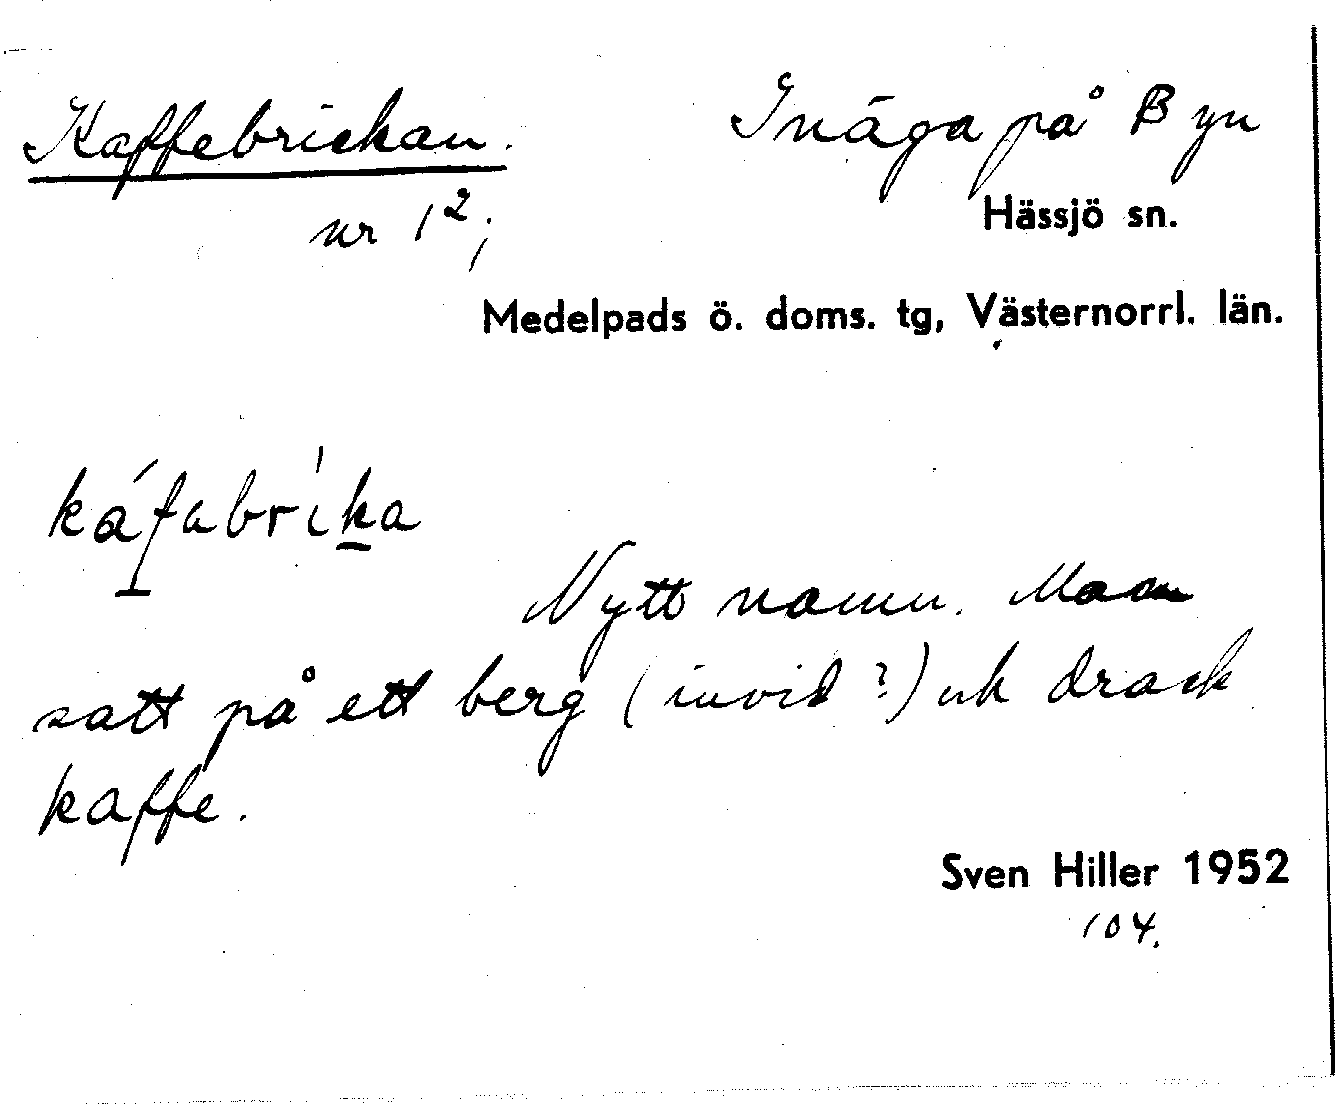 Kaffebrickan. Inäga på Byn
nr 1²; Hässjö sn.
Medelpads ö. doms. tg, Västernorrl. län.
káfabrika
Nytt namn. Man
satt på ett berg (invid ?) och drack
kaffe.
Sven Hiller 1952
104.